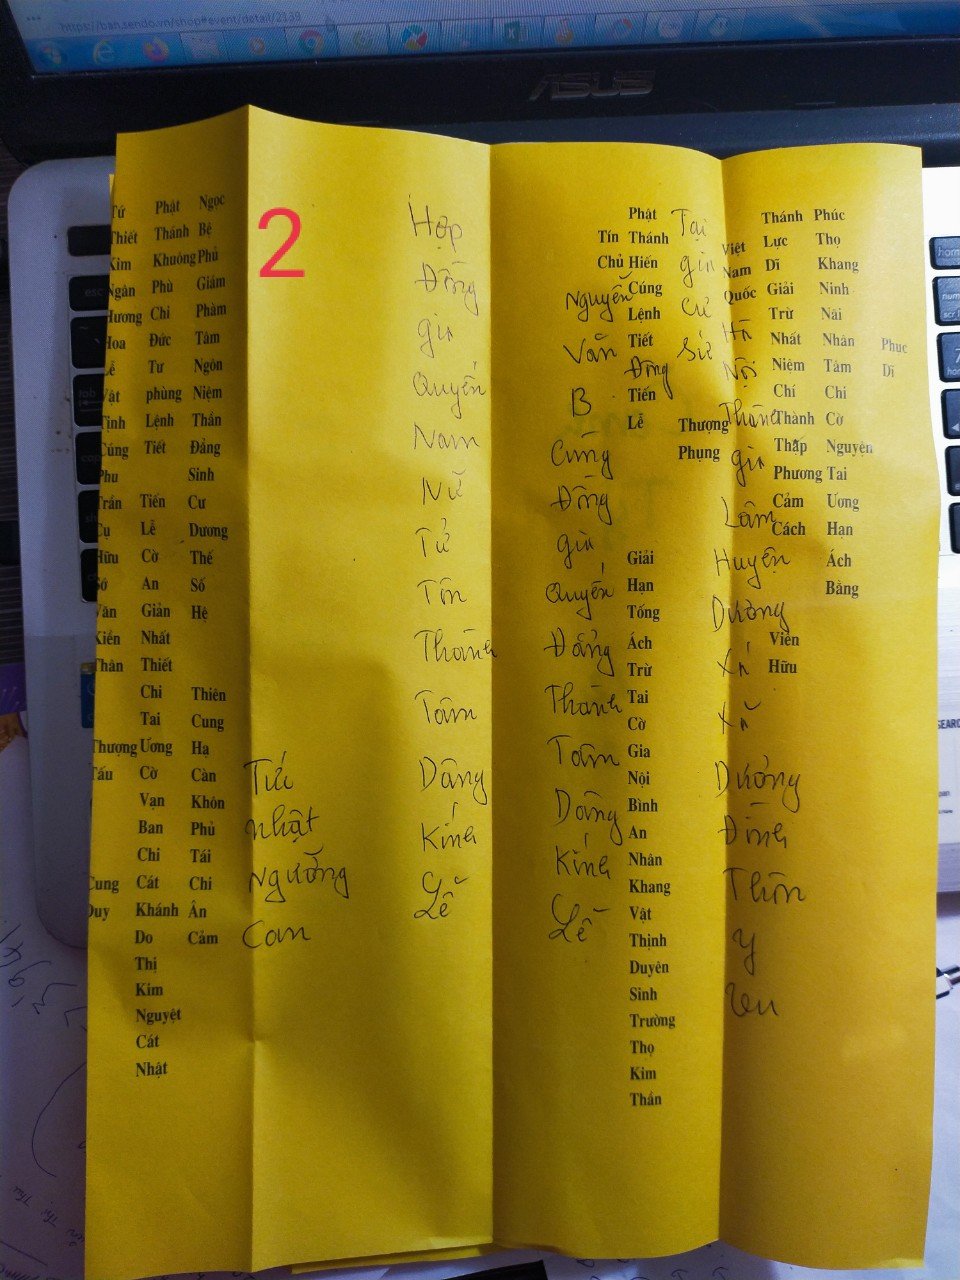 https://ban.sendo.vn/shop#event/detail/2339
ASUS
2
Phuc Di
Phúc Thọ Khang Ninh Nãi Nhân Tâm Chi Cờ Nguyện Tai Ương Hạn Ách Bằng
Thánh Lực Dĩ Giải Trừ Nhất Niệm Chí Thành Thập Phương Cảm Cách Viên Hữu
Việt Nam Quốc Hà Nội Thành gia Lâm Huyện Dương Xá Xã Dương Đình Thôn y vu
Tại gia cư Thượng Phụng
Phật Thánh Hiến Cúng Lệnh Tiết Đông Tiến Lễ Giải Hạn Tống Ách Trừ Tai Cờ Gia Nội Bình An Nhân Khang Vật Thịnh Duyên Sinh Trường Thọ Kim Thần
Tín Chủ Nguyễn Văn B Cùng Đồng gia Quyến Đẳng Thành Tâm Dâng Kính Lễ
Hợp Đồng gia Quyến Nam Nữ Tử Tôn Thành Tâm Dâng Kính Lễ
Tức Nhật Ngưỡng Can
Ngọc Bệ Phủ Giám Phàm Tâm Ngôn Niệm Thần Đẳng Sinh Cư Dương Thế Số Hệ Thiên Cung Hạ Càn Khôn Phủ Tái Chi Ân Cảm
Phật Thánh Khuông Phù Chi Đức Tư phùng Lệnh Tiết Tiến Lễ Cờ An Giản Nhất Thiết Chi Tai Ương Cờ Vạn Ban Chi Cát Khánh Do Thị Kim Nguyệt Cát Nhật
Tứ Thiết Kim Ngân Hương Hoa Lễ Vật Tịnh Cúng Phu Trần Cụ Hữu Sớ Văn Kiền Thân Thượng Tấu Cung Duy